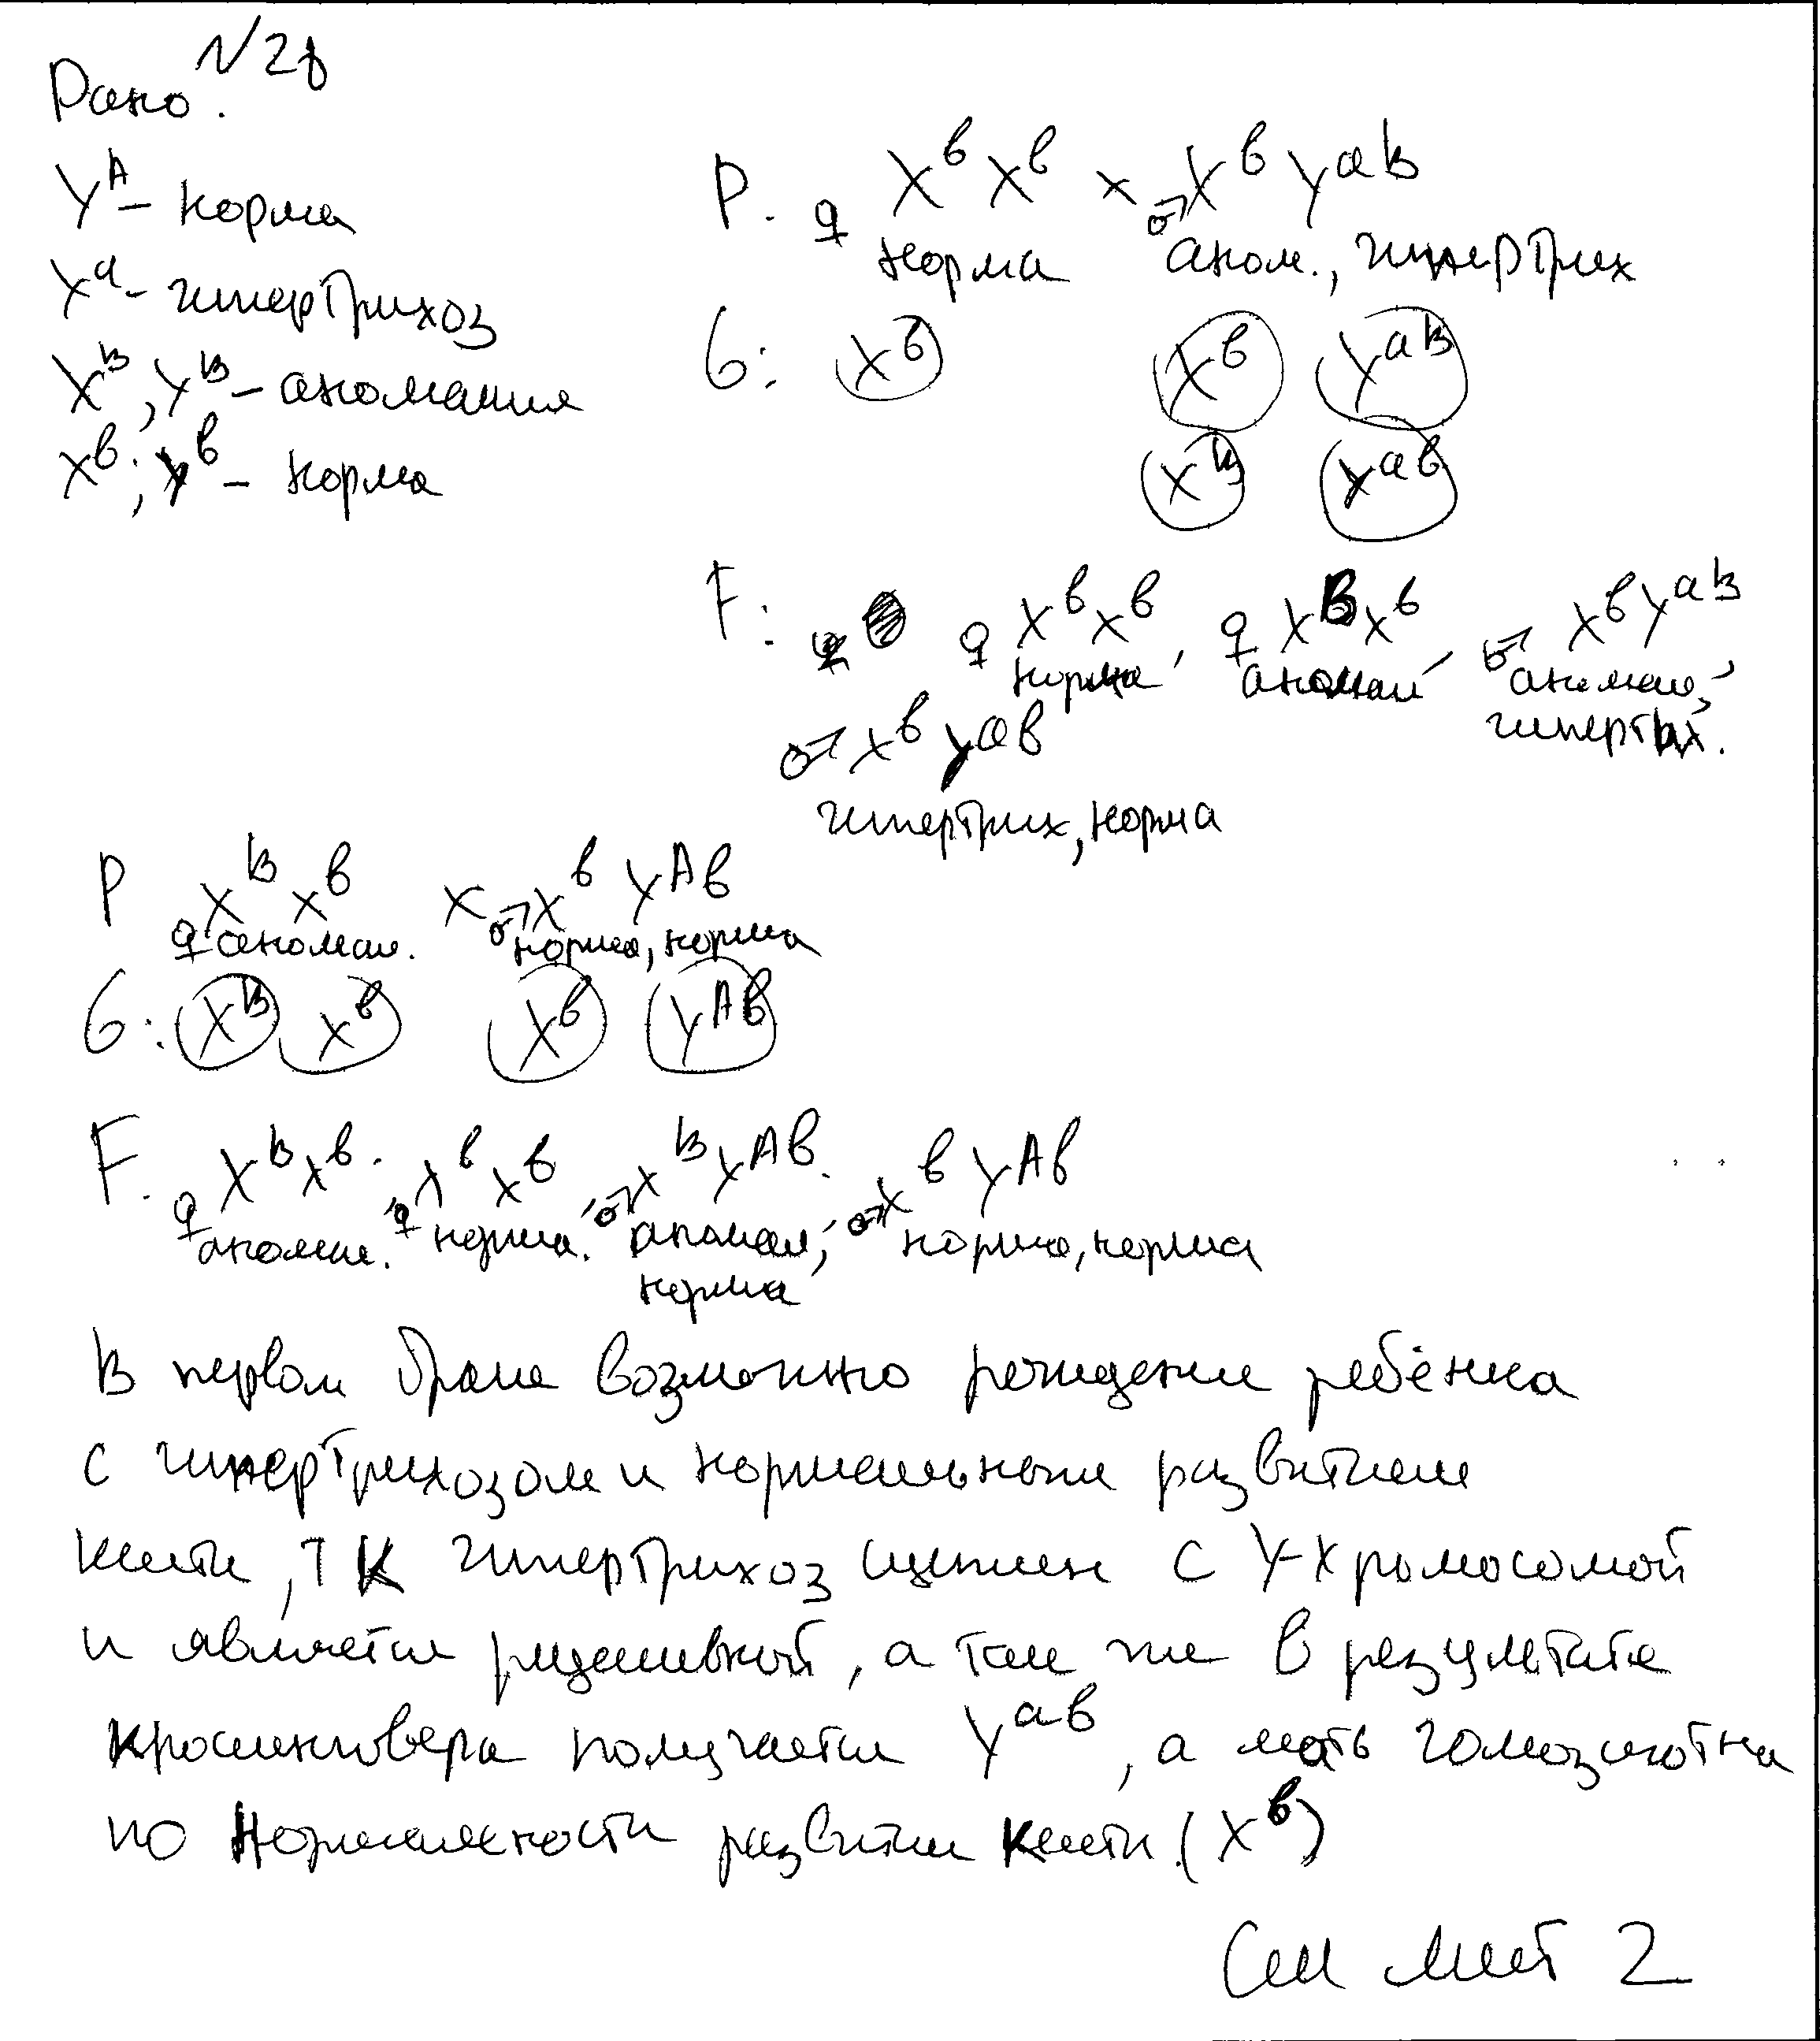 №28
Дано:
Y^A – норма
Y^a – гипертрихоз
X^B, Y^B – аномалия
X^b; Y^b – норма
P. ♀ X^b X^b × ♂ X^b Y^aB
норма аном., гипертрих
G: X^b X^b Y^aB
X^B Y^ab
F: ♀ X^b X^b, ♀ X^B X^b, ♂ X^b Y^aB
норма аномал аномал,
гипертрих.
♂ X^b Y^ab
гипертрих, норма
P ♀ X^B X^b × ♂ X^b Y^Ab
аномал. норма, норма
G: X^B X^b X^b Y^Ab
F. ♀ X^B X^b; ♀ X^b X^b; ♂ X^B Y^Ab; ♂ X^b Y^Ab
аномал. норма. аномал, норма, норма
норма
В первом браке возможно рождение ребёнка
с гипертрихозом и нормальным развитием
кисти, тк гипертрихоз сцеплен с Y-хромосомой
и является рецессивной, а так же в результате
кроссинговера получается Y^ab, а мать гомозиготна
по нормальности развития кисти (X^b)
См лист 2